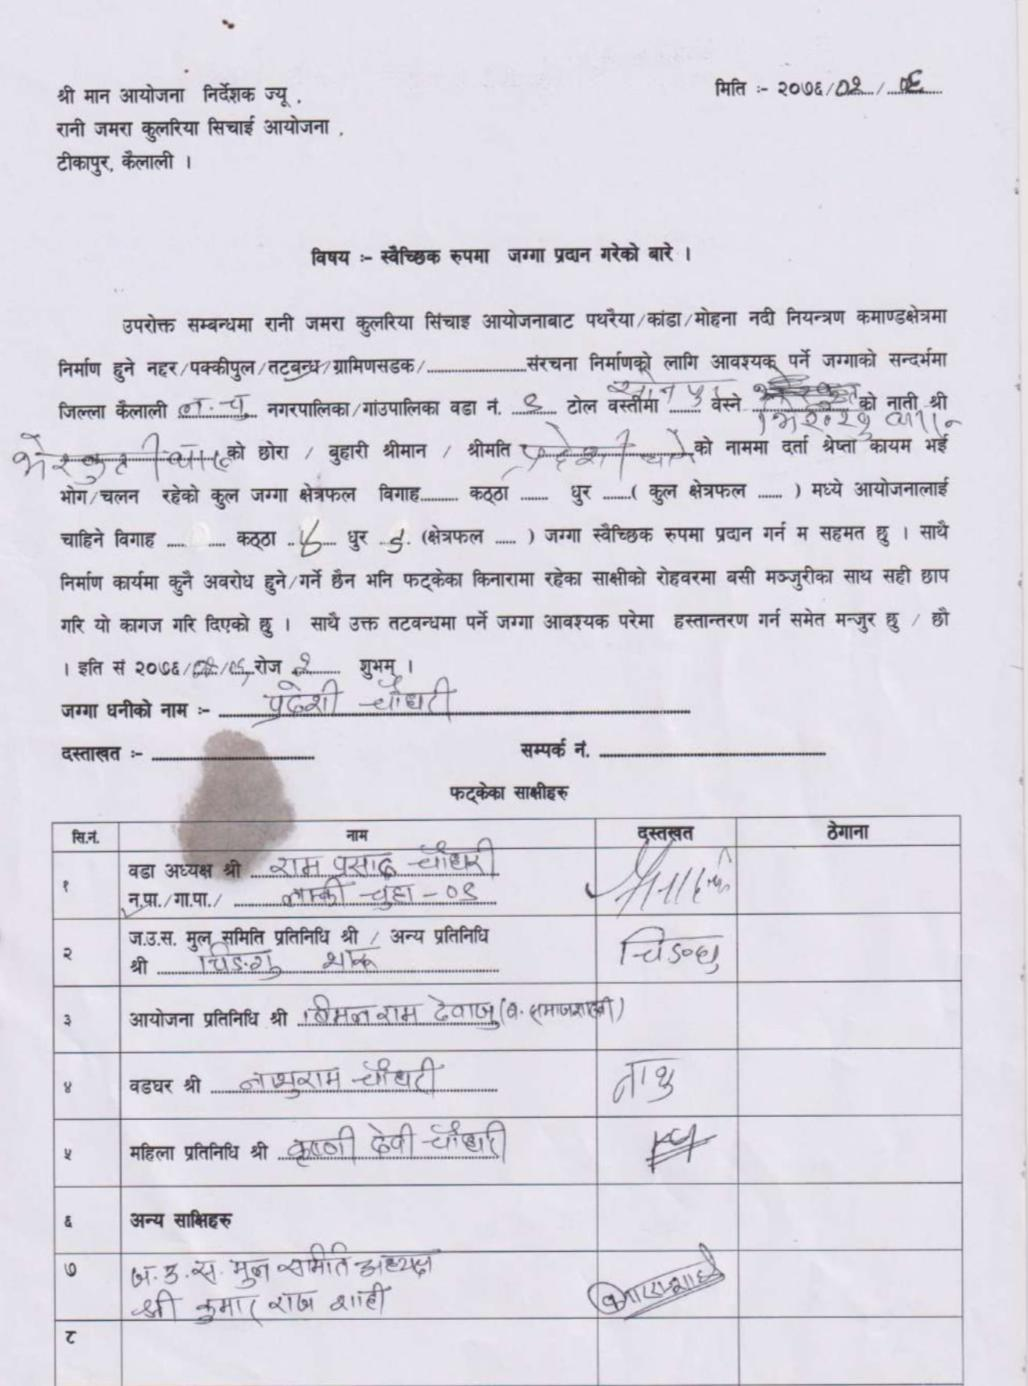 मिति :- २०७६/02/...०६
श्री मान आयोजना निर्देशक ज्यू ,
रानी जमरा कुलरिया सिचाई आयोजना ,
टीकापुर, कैलाली ।
विषय :- स्वैच्छिक रुपमा जग्गा प्रदान गरेको बारे ।
उपरोक्त सम्बन्धमा रानी जमरा कुलरिया सिंचाइ आयोजनाबाट पथरैया/कांडा/मोहना नदी नियन्त्रण कमाण्डक्षेत्रमा
निर्माण हुने नहर/पक्कीपुल/तटबन्ध/ग्रामिणसडक/....................संरचना निर्माणको लागि आवश्यक पर्ने जग्गाको सन्दर्भमा
जिल्ला कैलाली ल.चु नगरपालिका/गांउपालिका वडा नं. ..९.. टोल वस्तीमा ...... वेस्ने को नाती श्री
को छोरा / बुहारी श्रीमान / श्रीमति प्रदेशी को नाममा दर्ता श्रेप्ता कायम भई
भोग/चलन रहेको कुल जग्गा क्षेत्रफल विगाह......... कठ्ठा ...... धुर ......( कुल क्षेत्रफल ...... ) मध्ये आयोजनालाई
चाहिने विगाह ..... कठ्ठा ..... धुर ..... (क्षेत्रफल ..... ) जग्गा स्वैच्छिक रुपमा प्रदान गर्न म सहमत छु । साथै
निर्माण कार्यमा कुनै अवरोध हुने/गर्ने छैन भनि फट्केका किनारामा रहेका साक्षीको रोहवरमा बसी मञ्जुरीका साथ सही छाप
गरि यो कागज गरि दिएको छु । साथै उक्त तटवन्धमा पर्ने जग्गा आवश्यक परेमा हस्तान्तरण गर्न समेत मन्जुर छु / छौ
। इति सं २०७६/०२/०६ रोज २ शुभम् ।
जग्गा धनीको नाम :- प्रदेशी चौधरी
दस्ताखत :- ........................ सम्पर्क नं. ........................
फट्केका साक्षीहरु
सि.नं. नाम दस्तखत ठेगाना
१ वडा अध्यक्ष श्री राम प्रसाद चौधरी
न.पा./गा.पा./ लम्की चुहा - ०९
२ ज.उ.स. मुल समिति प्रतिनिधि श्री / अन्य प्रतिनिधि
श्री
३ आयोजना प्रतिनिधि श्री
४ वडघर श्री नाथुराम चौधरी नाथु
५ महिला प्रतिनिधि श्री कृष्णी देवी चौधरी
६ अन्य साक्षिहरु
७ ज.उ.स. मुल समिति अध्यक्ष
श्री कुमार राज शाही
८